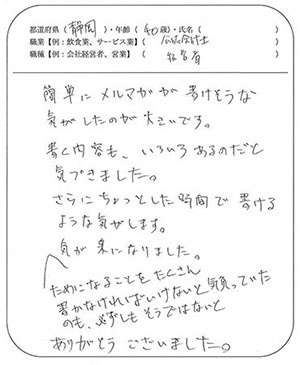 都道府県(静岡)・年齢(40歳)・氏名( )
職業【例:飲食業、サービス業】(公認会計士)
職種【例:会社経営者、営業】(経営者)
簡単にメルマガが書けそうな
気がしたのが大きいです。
書く内容も、いろいろあるのだと
気づきました。
さらにちょっとした時間で書ける
ような気がします。
気が楽になりました。
ためになることをたくさん
書かなければいけないと気負っていた
のも、必ずしもそうではないと
ありがとうございました。